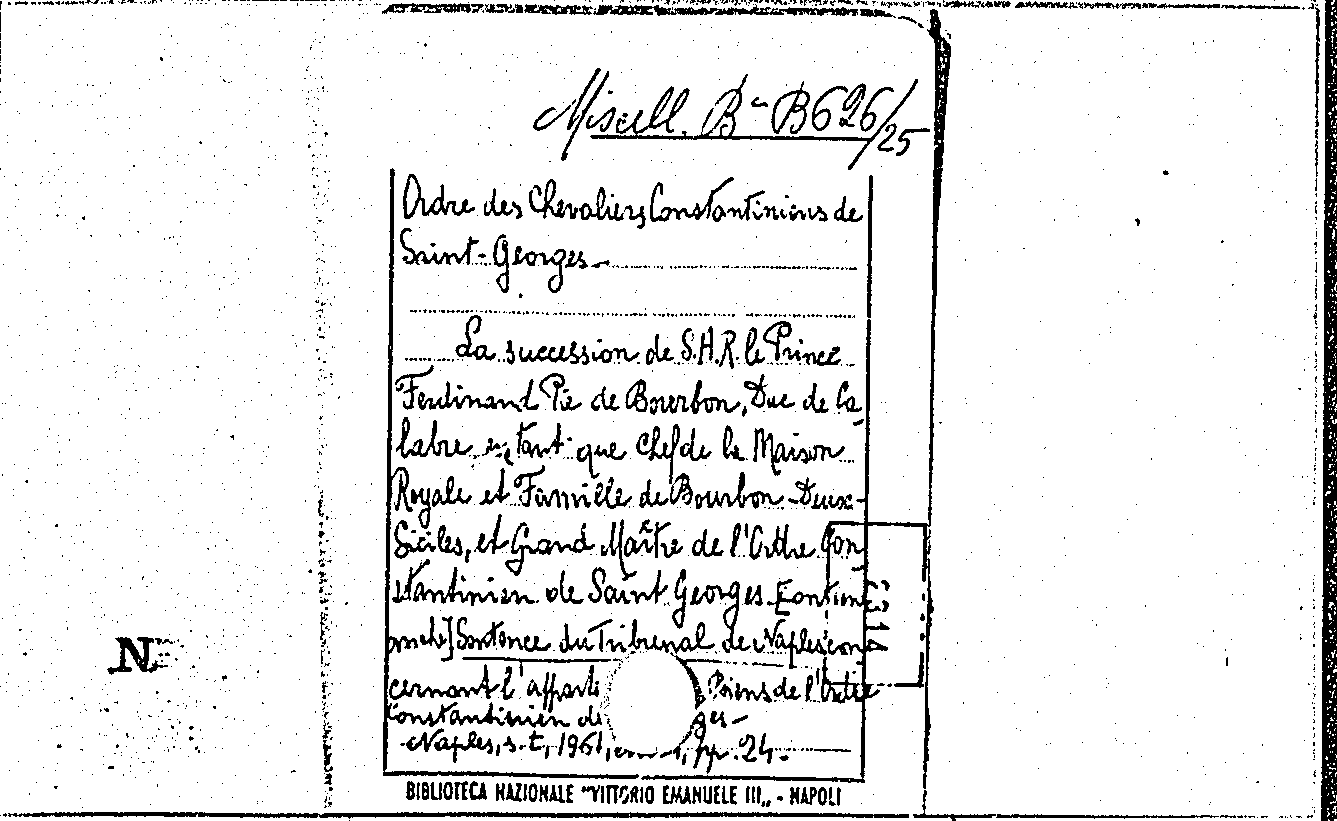 Miscell. Bª B626/25
Ordre des Chevaliers Constantiniens de
Saint-Georges
La succession de S.A.R. le Prince
Ferdinand Pie de Bourbon, Duc de Ca
labre en tant que Chef de la Maison
Royale et Famille de Bourbon-Deux-
Siciles, et Grand Maître de l'Ordre Con
stantinien de Saint Georges
Sentence du Tribunal de Naples con
cernant l' de l'Ordre
Constantinien
Naples, s.t., 1961, pp. 24.
314
N
BIBLIOTECA NAZIONALE "VITTORIO EMANUELE III„ - NAPOLI